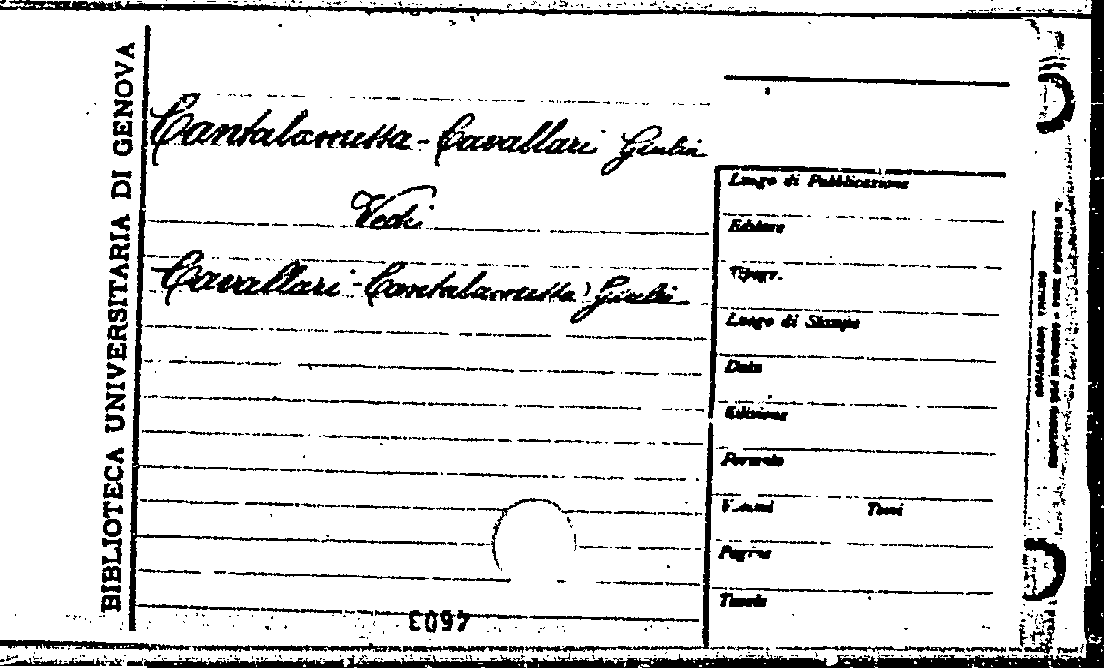 BIBLIOTECA UNIVERSITARIA DI GENOVA
Cantalamessa-Cavallari Giulia
Vedi
Cavallari-Cantalamessa Giulia
Luogo di Pubblicazione
Editore
Tipogr.
Luogo di Stampa
Data
Edizione
Formato
Volumi Tomi
Pagine
Tavole